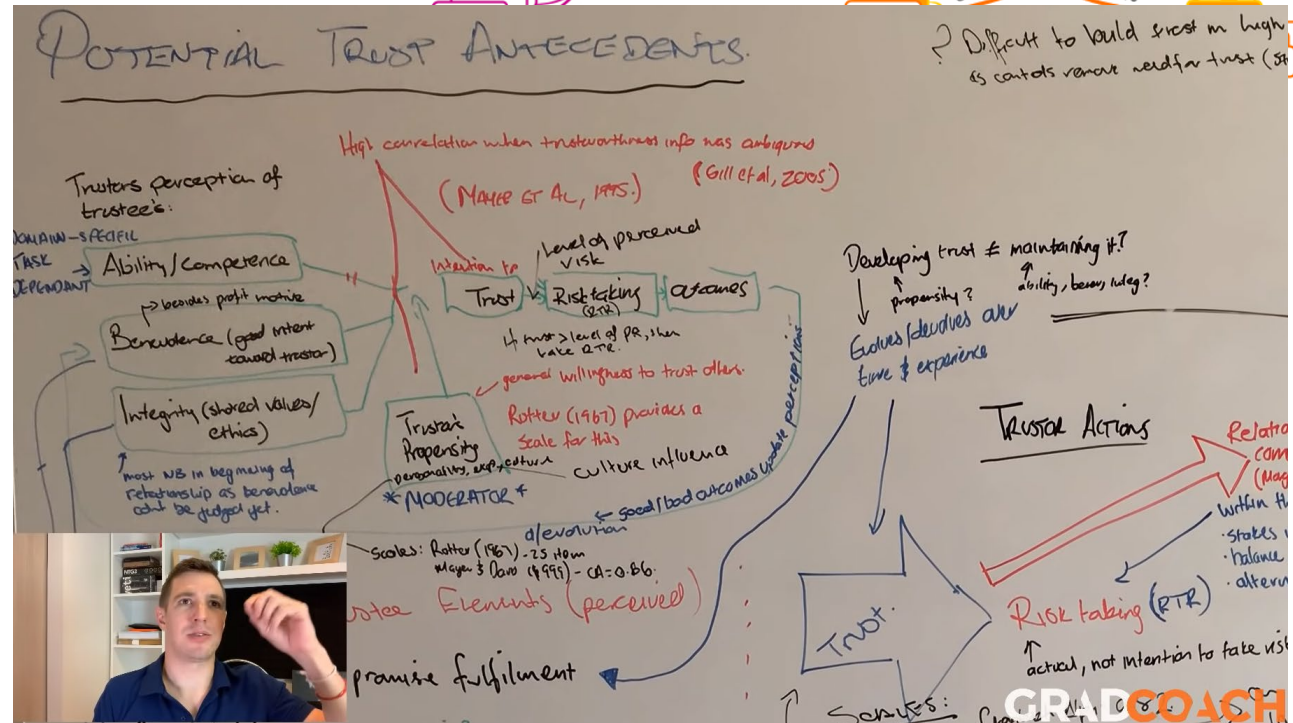 POTENTIAL TRUST ANTECEDENTS.
? Difficult to build trust in high
as controls remove need for trust (St
High correlation when trustworthiness info was ambiguous
(Gill et al, 2005)
(MAYER ET AL, 1995.)
Trustors perception of
trustee's:
DOMAIN-SPECIFIC
TASK
DEPENDANT
Ability/competence
besides profit motive
Benevolence (good intent
toward trustor)
Integrity (shared values/
ethics)
most NB in beginning of
relationship as benevolence
can't be judged yet.
Level of perceived
risk
Intention to
Trust
Risk taking
(RTR)
outcomes
if trust > level of PR, then
take RTR.
general willingness to trust others.
Rotter (1967) provides a
scale for this
Trustor's
Propensity
personality, exp, culture
culture influence
* MODERATOR *
good/bad outcomes update perceptions
d/evolution
Scales: Rotter (1967) - 25 item
Mayer & Davis (1999) - CA=0.86.
ustee Elements (perceived)
promise fulfilment
Developing trust ≠ maintaining it?
propensity?
ability, benev, integ?
Evolves/devolves over
time & experience
TRUSTOR ACTIONS
Relatio
com
(Mag
within th
• stakes
• balance
• altern
Trust.
Risk taking (RTR)
actual, not intention to take risk
SCALES:
GRADCOACH